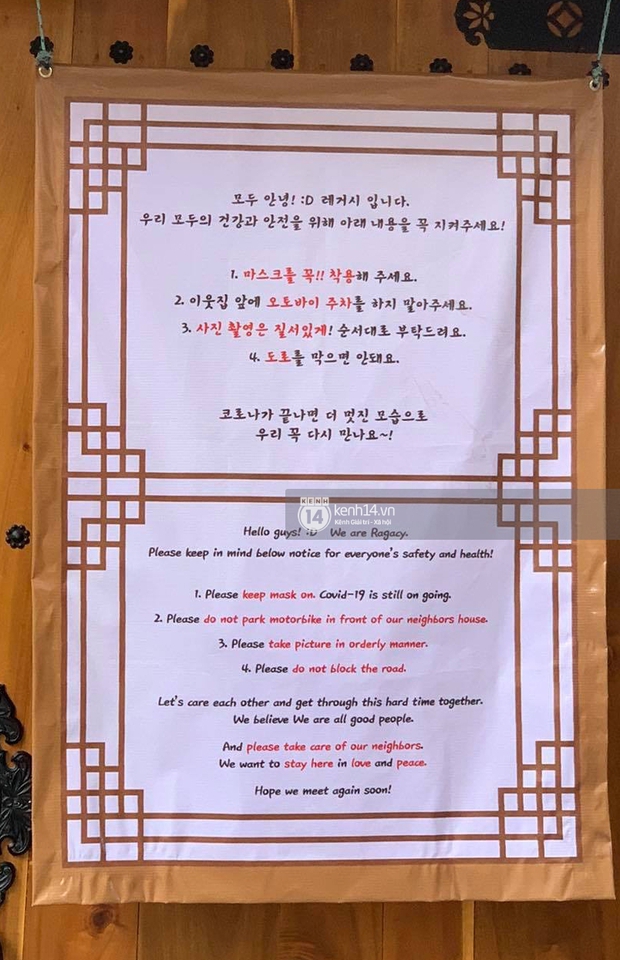 모두 안녕! :D 레거시 입니다.
우리 모두의 건강과 안전을 위해 아래 내용을 꼭 지켜주세요!
1. 마스크를 꼭!! 착용해 주세요.
2. 이웃집 앞에 오토바이 주차를 하지 말아주세요.
3. 사진 촬영은 질서있게! 순서대로 부탁드려요.
4. 도로를 막으면 안돼요.
코로나가 끝나면 더 멋진 모습으로
우리 꼭 다시 만나요~!
KENH
14
kenh14.vn
Kênh Giải trí - Xã hội
Hello guys! :D We are Ragacy.
Please keep in mind below notice for everyone's safety and health!
1. Please keep mask on. Covid-19 is still on going.
2. Please do not park motorbike in front of our neighbors house.
3. Please take picture in orderly manner.
4. Please do not block the road.
Let's care each other and get through this hard time together.
We believe We are all good people.
And please take care of our neighbors.
We want to stay here in love and peace.
Hope we meet again soon!